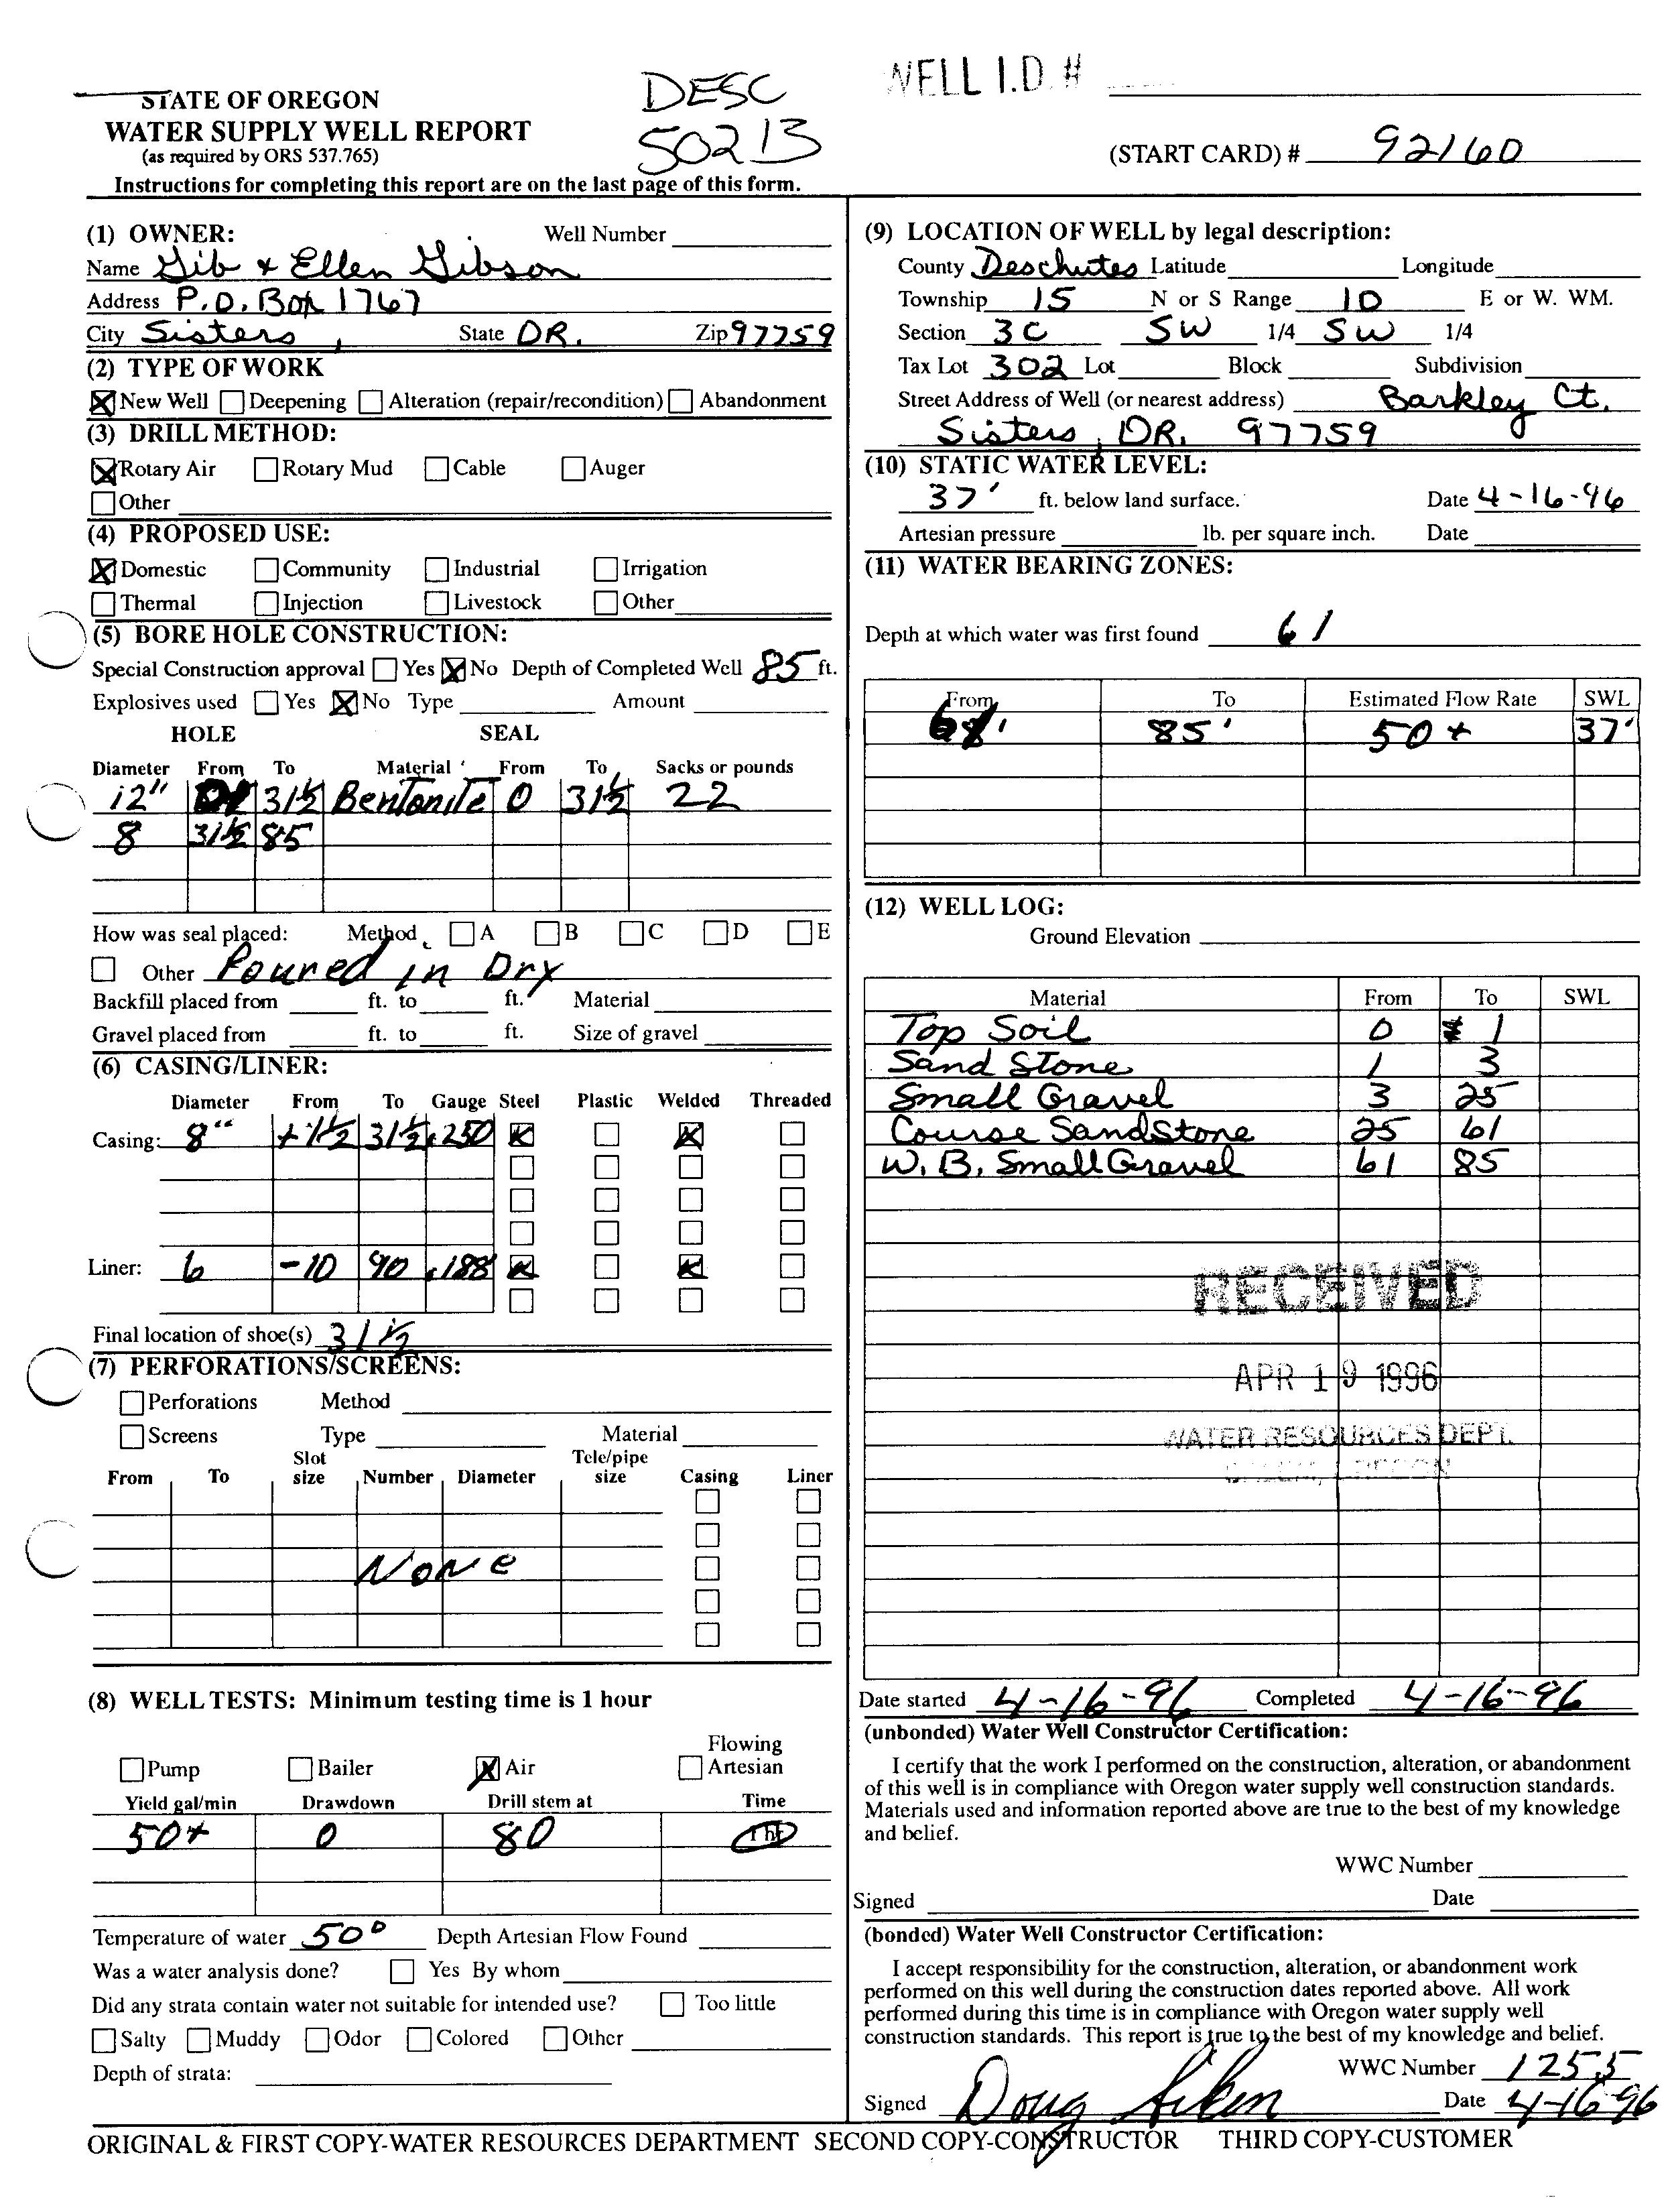 STATE OF OREGON
WATER SUPPLY WELL REPORT
(as required by ORS 537.765)
Instructions for completing this report are on the last page of this form.
DESC
50213
WELL I.D. #
(START CARD) # 92160
(1) OWNER: Well Number
Name Gib + Ellen Gibson
Address P.O. Box 1767
City Sisters, State OR. Zip 97759
(2) TYPE OF WORK
New Well Deepening Alteration (repair/recondition) Abandonment
(3) DRILL METHOD:
Rotary Air Rotary Mud Cable Auger
Other
(4) PROPOSED USE:
Domestic Community Industrial Irrigation
Thermal Injection Livestock Other
(5) BORE HOLE CONSTRUCTION:
Special Construction approval Yes No Depth of Completed Well 85 ft.
Explosives used Yes No Type Amount
HOLE SEAL
Diameter From To Material From To Sacks or pounds
12" 31½ Bentonite 0 31½ 22
8 31½ 85
How was seal placed: Method A B C D E
Other Poured in Dry
Backfill placed from ft. to ft. Material
Gravel placed from ft. to ft. Size of gravel
(6) CASING/LINER:
Diameter From To Gauge Steel Plastic Welded Threaded
Casing: 8" +1½ 31½ .250
Liner: 6 -10 90 .188
Final location of shoe(s) 31½
(7) PERFORATIONS/SCREENS:
Perforations Method
Screens Type Material
From To Slot size Number Diameter Tele/pipe size Casing Liner
None
(8) WELL TESTS: Minimum testing time is 1 hour
Pump Bailer Air Flowing Artesian
Yield gal/min Drawdown Drill stem at Time
50+ 0 80 1 hr
Temperature of water 50° Depth Artesian Flow Found
Was a water analysis done? Yes By whom
Did any strata contain water not suitable for intended use? Too little
Salty Muddy Odor Colored Other
Depth of strata:
(9) LOCATION OF WELL by legal description:
County Deschutes Latitude Longitude
Township 15 N or S Range 10 E or W. WM.
Section 3C SW 1/4 SW 1/4
Tax Lot 302 Lot Block Subdivision
Street Address of Well (or nearest address) Barkley Ct.
Sisters, OR. 97759
(10) STATIC WATER LEVEL:
37' ft. below land surface. Date 4-16-96
Artesian pressure lb. per square inch. Date
(11) WATER BEARING ZONES:
Depth at which water was first found 61
From To Estimated Flow Rate SWL
85' 50+ 37'
(12) WELL LOG:
Ground Elevation
Material From To SWL
Top Soil 0 1
Sand Stone 1 3
Small Gravel 3 25
Course SandStone 25 61
W.B. Small Gravel 61 85
RECEIVED
APR 19 1996
WATER RESOURCES DEPT.
SALEM, OREGON
Date started 4-16-96 Completed 4-16-96
(unbonded) Water Well Constructor Certification:
I certify that the work I performed on the construction, alteration, or abandonment
of this well is in compliance with Oregon water supply well construction standards.
Materials used and information reported above are true to the best of my knowledge
and belief.
WWC Number
Signed Date
(bonded) Water Well Constructor Certification:
I accept responsibility for the construction, alteration, or abandonment work
performed on this well during the construction dates reported above. All work
performed during this time is in compliance with Oregon water supply well
construction standards. This report is true to the best of my knowledge and belief.
WWC Number 1255
Signed Doug Aiken Date 4-16-96
ORIGINAL & FIRST COPY-WATER RESOURCES DEPARTMENT SECOND COPY-CONSTRUCTOR THIRD COPY-CUSTOMER